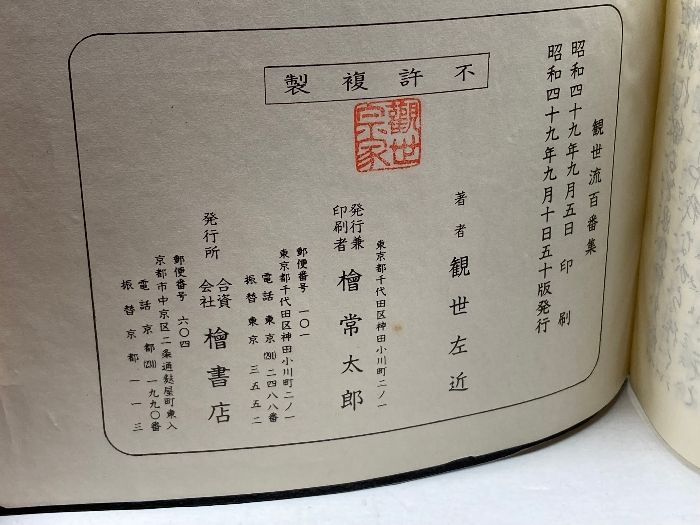 不許複製
観世流百番集
昭和四十九年九月五日 印刷
昭和四十九年九月十日五十版発行
觀世宗家
著者 観世左近
東京都千代田区神田小川町二ノ一
発行兼印刷者 檜常太郎
郵便番号 一〇一
東京都千代田区神田小川町二ノ一
電話東京(291)二四八八番
振替東京 三五五二
発行所 合資会社 檜書店
郵便番号 六〇四
京都市中京区二条通麩屋町東入
電話京都(231)一九九〇番
振替京都一一三